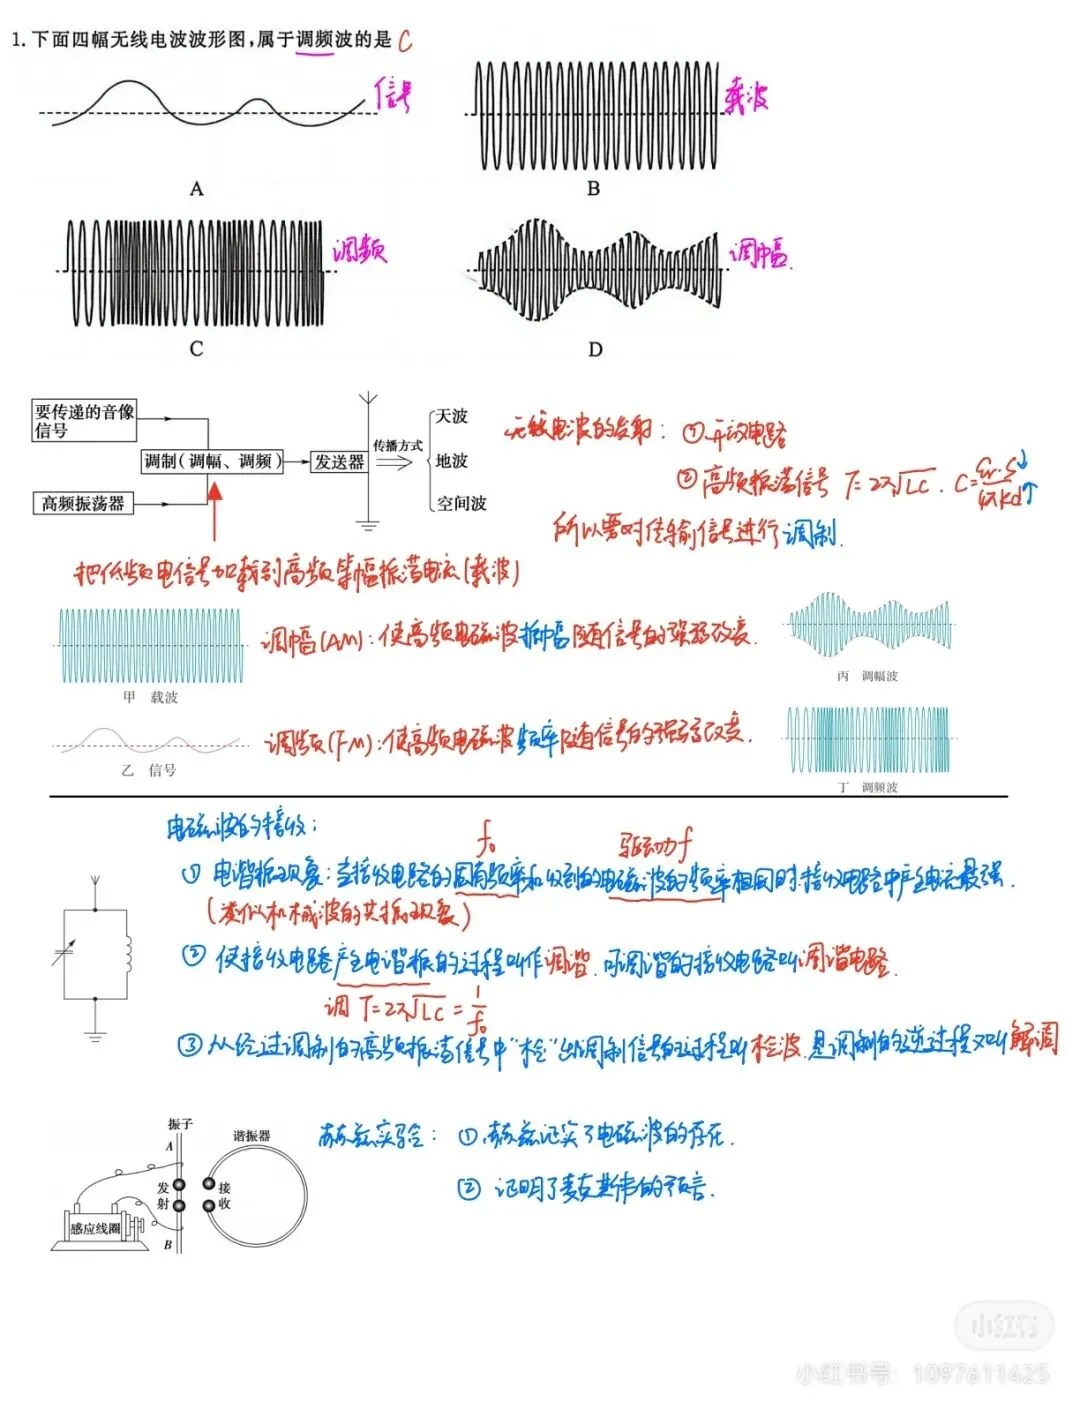 1. 下面四幅无线电波波形图，属于调频波的是 C
信号
载波
A
B
调频
调幅.
C
D
要传递的音像
信号
调制(调幅、调频)
发送器
传播方式
天波
地波
空间波
高频振荡器
无线电波的发射: ①开放电路
②高频振荡信号 T=2π√LC. C=εr·S↓/4πkd↑
所以要对传输信号进行调制.
把低频电信号加载到高频等幅振荡电流(载波)
甲 载波
调幅(AM): 使高频电磁波振幅随信号的强弱改变.
丙 调幅波
乙 信号
调频(FM): 使高频电磁波频率随信号的强弱改变.
丁 调频波
电磁波的接收:
f₀
驱动力f
① 电谐振现象: 当接收电路的固有频率和收到的电磁波的频率相同时接收电路中产生电流最强.
(类似机械波的共振现象)
② 使接收电路产生电谐振的过程叫作调谐. 可调谐的接收电路叫调谐电路.
调 T=2π√LC=1/f₀
③ 从经过调制的高频振荡信号中"检"出调制信号的过程叫检波. 是调制的逆过程又叫解调
振子
A
谐振器
发射
接收
感应线圈
B
赫兹实验: ① 赫兹证实了电磁波的存在.
② 证明了麦克斯韦的预言.
小红书
小红书号: 1097611425